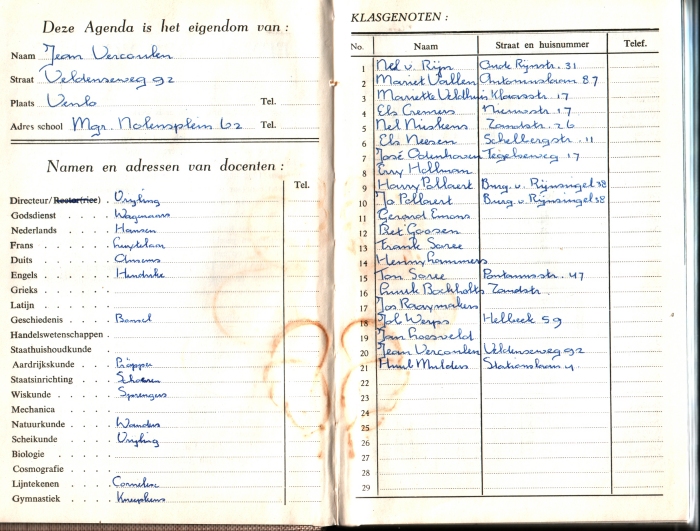 Deze Agenda is het eigendom van :
Naam Jean Verconlen
Straat Veldenseweg 92
Plaats Venlo Tel.
Adres school Mgr. Nolensplein 62 Tel.
Namen en adressen van docenten :
Tel.
Directeur/Rectrice) . Vryling
Godsdienst . . . . Wagemans
Nederlands . . . . Hansen
Frans . . . .
Duits . . . .
Engels . . . . Hendriks
Grieks . . . .
Latijn . . . .
Geschiedenis . . . . Bommel
Handelswetenschappen .
Staathuishoudkunde . .
Aardrijkskunde . . . Pöppen
Staatsinrichting . . . Schoenen
Wiskunde . . . . Sprengers
Mechanica . . . .
Natuurkunde . . . Wanders
Scheikunde . . . Vryling
Biologie . . . .
Cosmografie . . . .
Lijntekenen . . . . Cornelisse
Gymnastiek . . . . Kneepkens
KLASGENOTEN :
No. Naam Straat en huisnummer Telef.
1 Nel v. Rijn Oude Rijnstr. 31
2 Mariet Vallen Antoniuslaan 87
3 Mariette Veldhuis Klaasstr. 17
4 Els Cremers Nieuwstr. 17
5 Nel Niskens Zandstr. 26
6 Els Neesen Schelbergstr. 11
7 José Odenhoven Tegelseweg 17
8 Emy Hollman
9 Harry Pollaert Burg. v. Rijnsingel 38
10 Jo Pollaert Burg. v. Rijnsingel 38
11 Gerard Emons
12 Piet Goosen
13 Frank Saree
14 Henny Lommers
15 Ton Saree Pontanusstr. 47
16 Bockholts Zandstr.
17 Jos Raaymakers
18 Job Werps Helbeek 59
19 Jan Loosveld
20 Jean Verconlen Veldenseweg 92
21 Huub Mulders Stationslaan 4
22
23
24
25
26
27
28
29